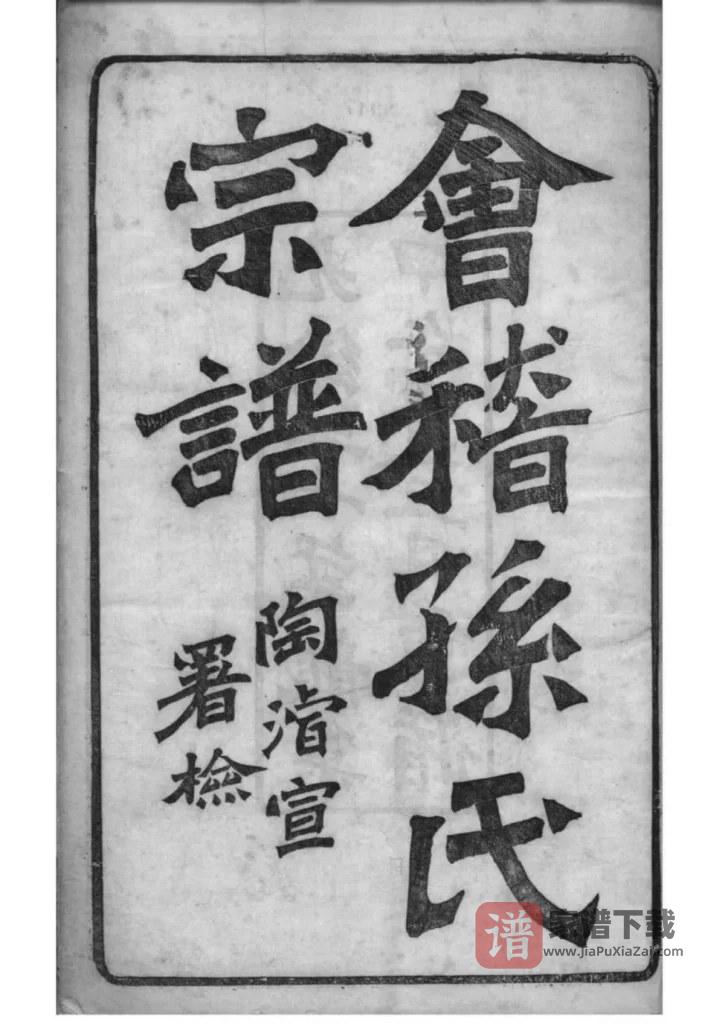 會稽孫氏
宗譜
陶濬宣
署檢
谱
家谱下载
www.JiaPuXiaZai.com